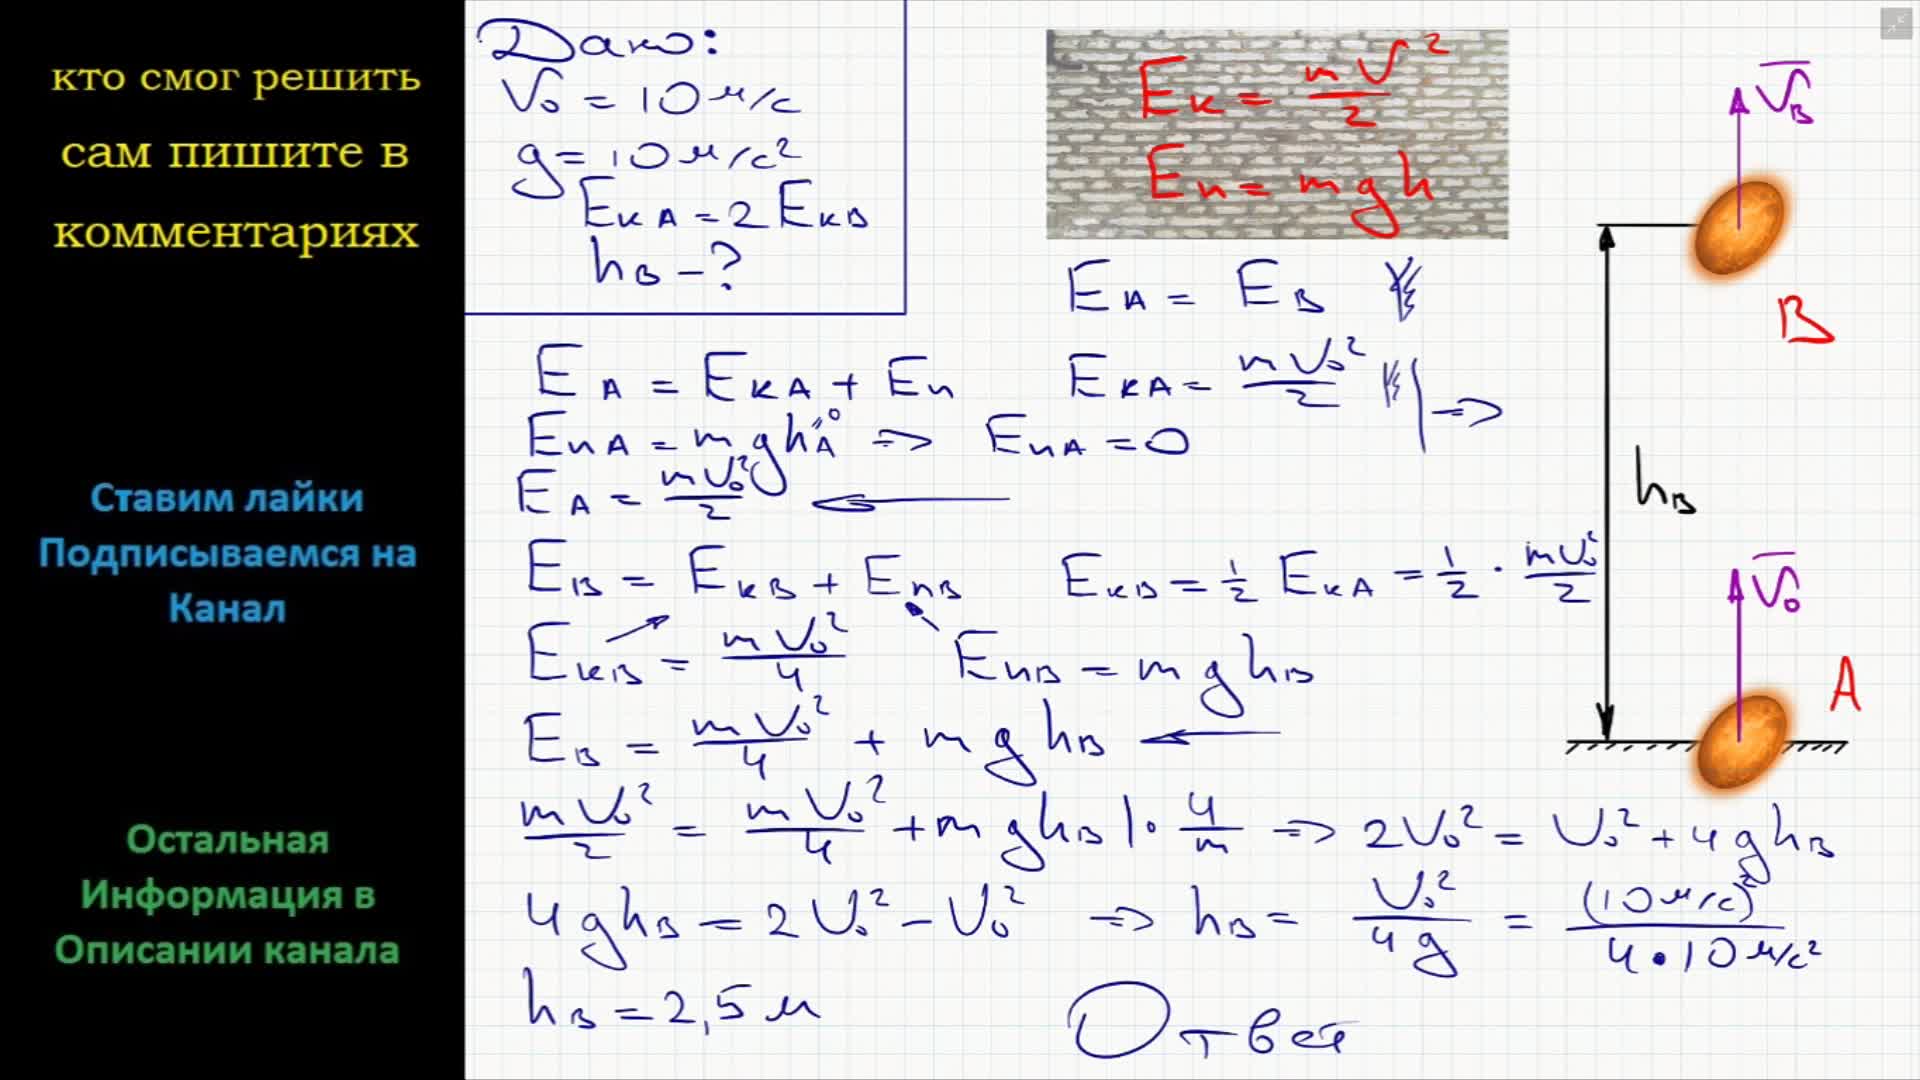 кто смог решить
сам пишите в
комментариях
Ставим лайки
Подписываемся на
Канал
Остальная
Информация в
Описании канала
Дано:
V₀ = 10 м/с
g = 10 м/с²
EкA = 2 EкB
hB - ?
Eк = mV²/2
Eп = mgh
EA = EB
EA = EкA + Eп
EкA = mV₀²/2 =>
EпA = mghA″⁰ => EпA = 0
EA = mV₀²/2 ←
EB = EкB + EпB
EкB = 1/2 EкA = 1/2 · mV₀²/2
EкB = mV₀²/4
EпB = mghB
EB = mV₀²/4 + mghB ←
mV₀²/2 = mV₀²/4 + mghB | · 4/m => 2V₀² = V₀² + 4ghB
4ghB = 2V₀² - V₀² => hB = V₀²/4g = (10 м/с)²/4·10 м/с²
hB = 2,5 м
Ответ
VB
B
hB
V₀
A